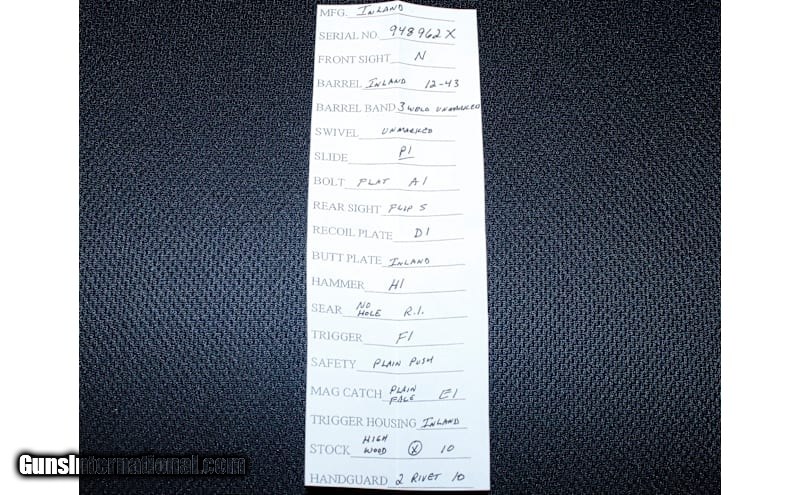 MFG. INLAND
SERIAL NO. 948962X
FRONT SIGHT N
BARREL INLAND 12-43
BARREL BAND 3 WELD UNMARKED
SWIVEL UNMARKED
SLIDE PI
BOLT FLAT AI
REAR SIGHT FLIP S
RECOIL PLATE DI
BUTT PLATE INLAND
HAMMER HI
SEAR NO HOLE R.I.
TRIGGER FI
SAFETY PLAIN PUSH
MAG CATCH PLAIN FACE EI
TRIGGER HOUSING INLAND
STOCK HIGH WOOD X IO
HANDGUARD 2 RIVET IO
GunsInternational.com